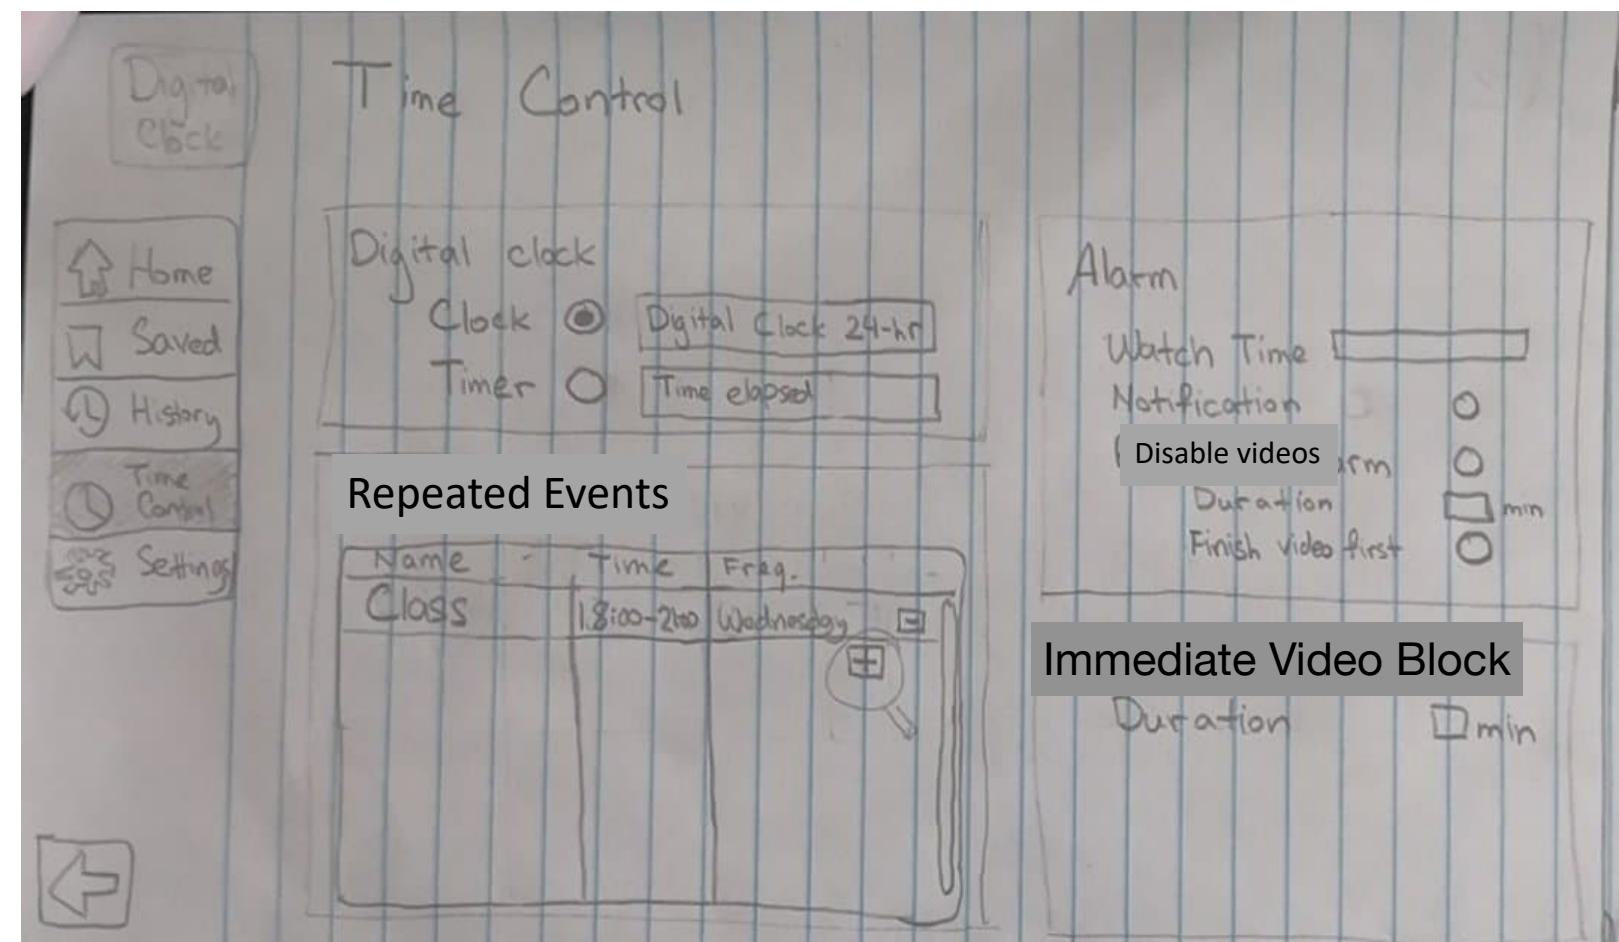 Digital
Clock
Time Control
Home
Saved
History
Time
Control
Settings
Digital clock
Clock Digital Clock 24-hr
Timer Time elapsed
Repeated Events
Name Time Freq.
Class 18:00-21:00 Wednesday
Alarm
Watch Time
Notification
Disable videos
Duration min
Finish video first
Immediate Video Block
Duration min